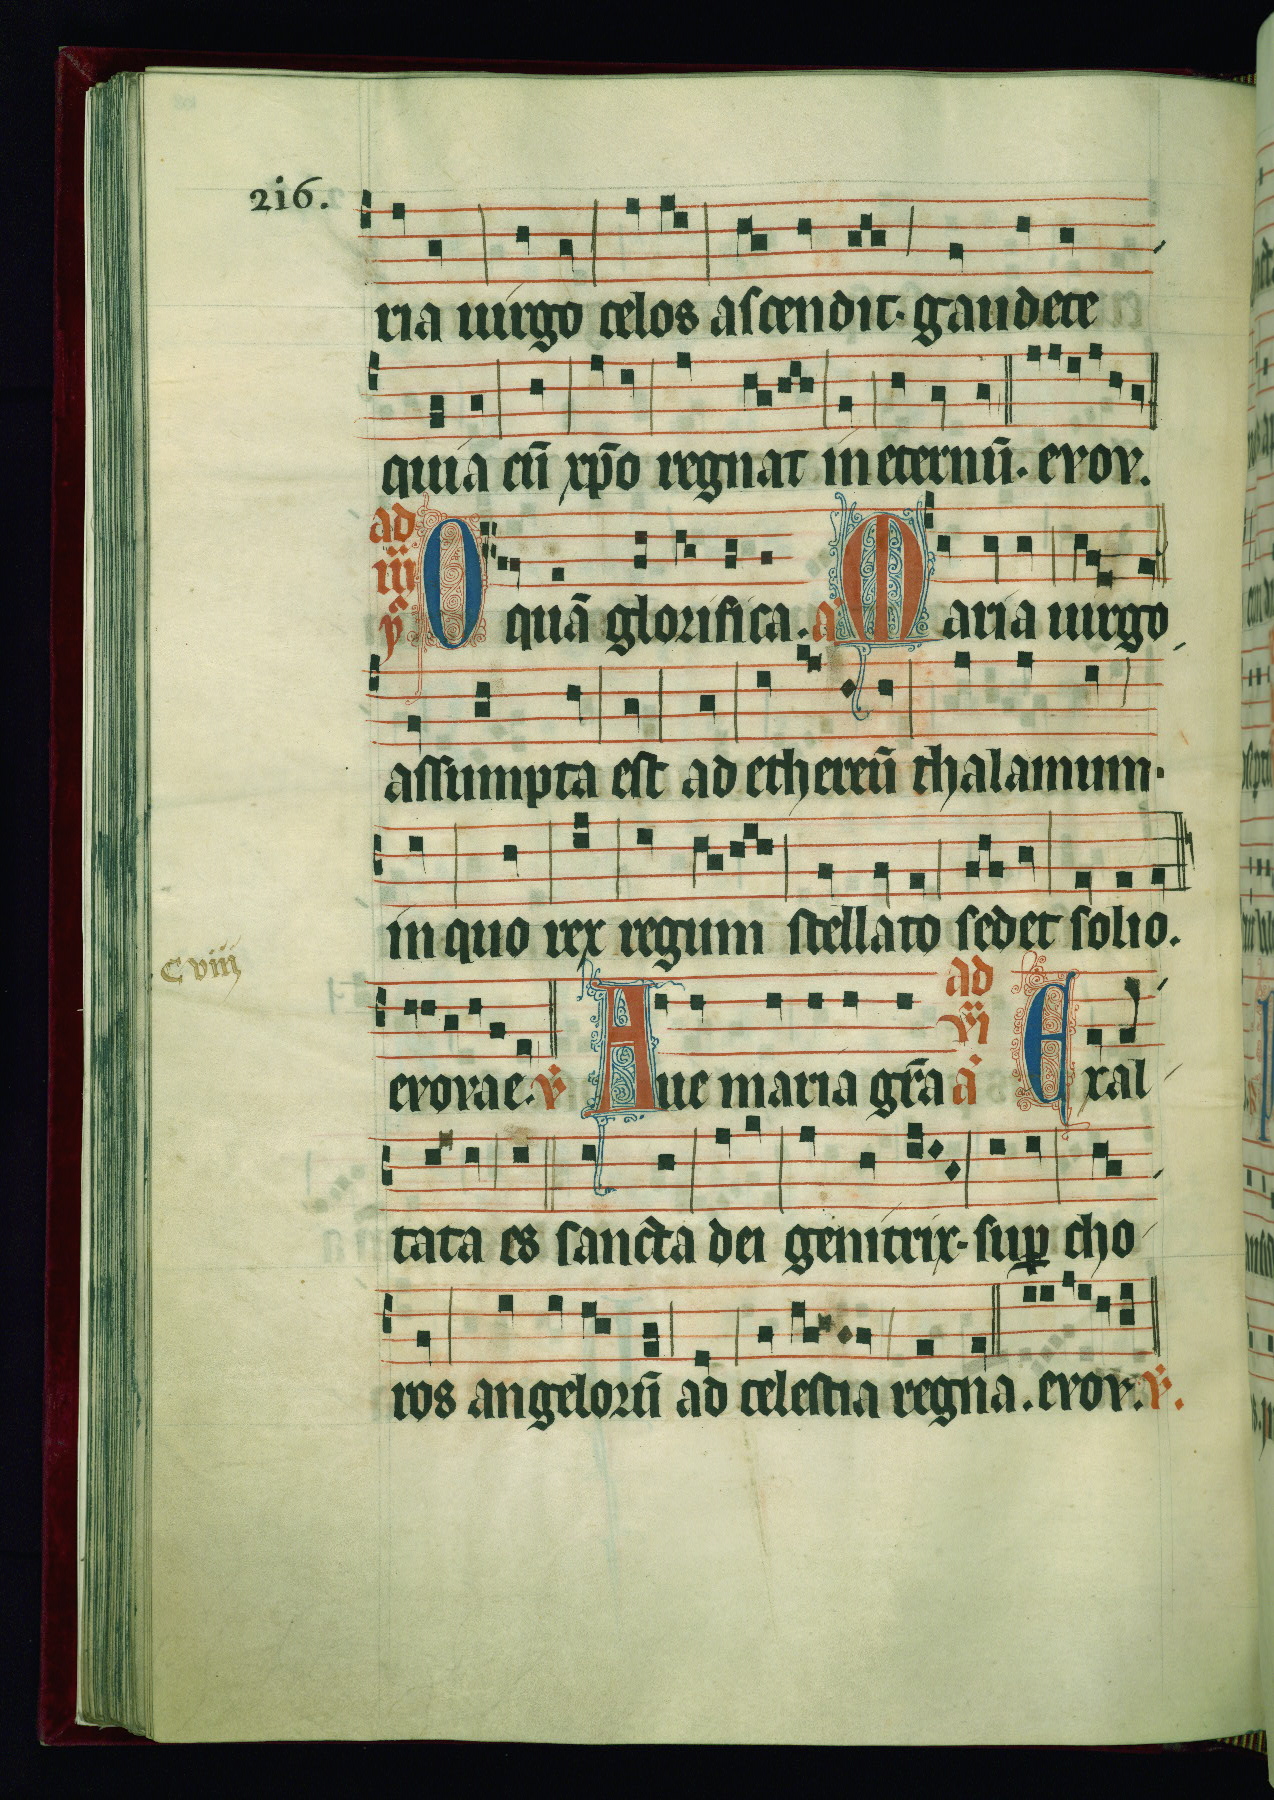 216.
ria uirgo celos ascendit. gaudete
quia cū xp̄o regnat in eternū. evov.
ad iii ŷ O quā glorifica. a Maria uirgo
assumpta est ad ethereū thalamum.
in quo rex regum stellato sedet solio.
C viii
evovae. v̇ Aue maria gr̄a ad vi a Exal
tata es sancta dei genitrix. suꝑ cho
ros angelorū ad celestia regna. evov. v̇.